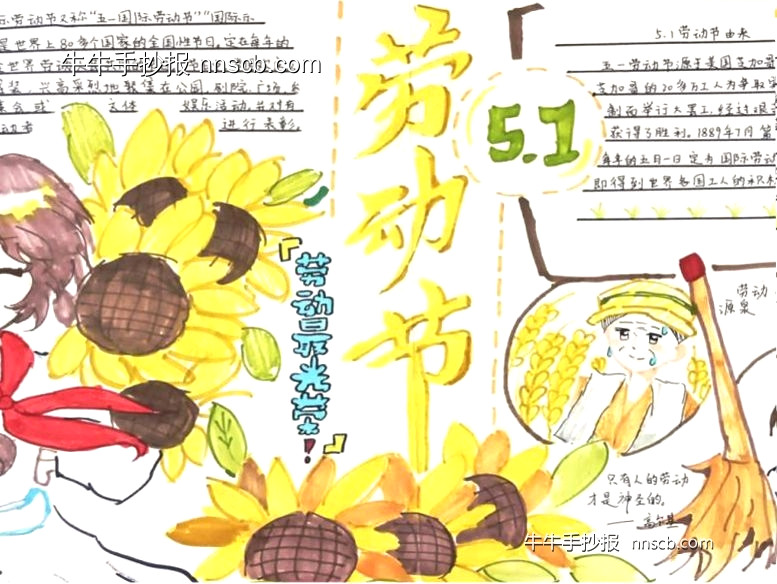 际劳动节又称“五一国际劳动节”“国际示
是世界上80多个国家的全国性节日。定在每年的
牛牛手抄报 nnscb.com
装，兴高采烈地聚集在公园、剧院、广场，
集会或 文体 娱乐活动，并对有
动者 进行表彰。
劳动节
5.1
『劳动最光荣！』
5.1劳动节由来
五一劳动节源于美国芝加哥
芝加哥的20多万工人为争取
制而举行大罢工，经过艰
获得了胜利。1889年7月，第
每年的五月一日定为国际劳动
即得到世界各国工人的积
劳动
源泉
只有人的劳动
才是神圣的。
——高尔基
牛牛手抄报 nnscb.com